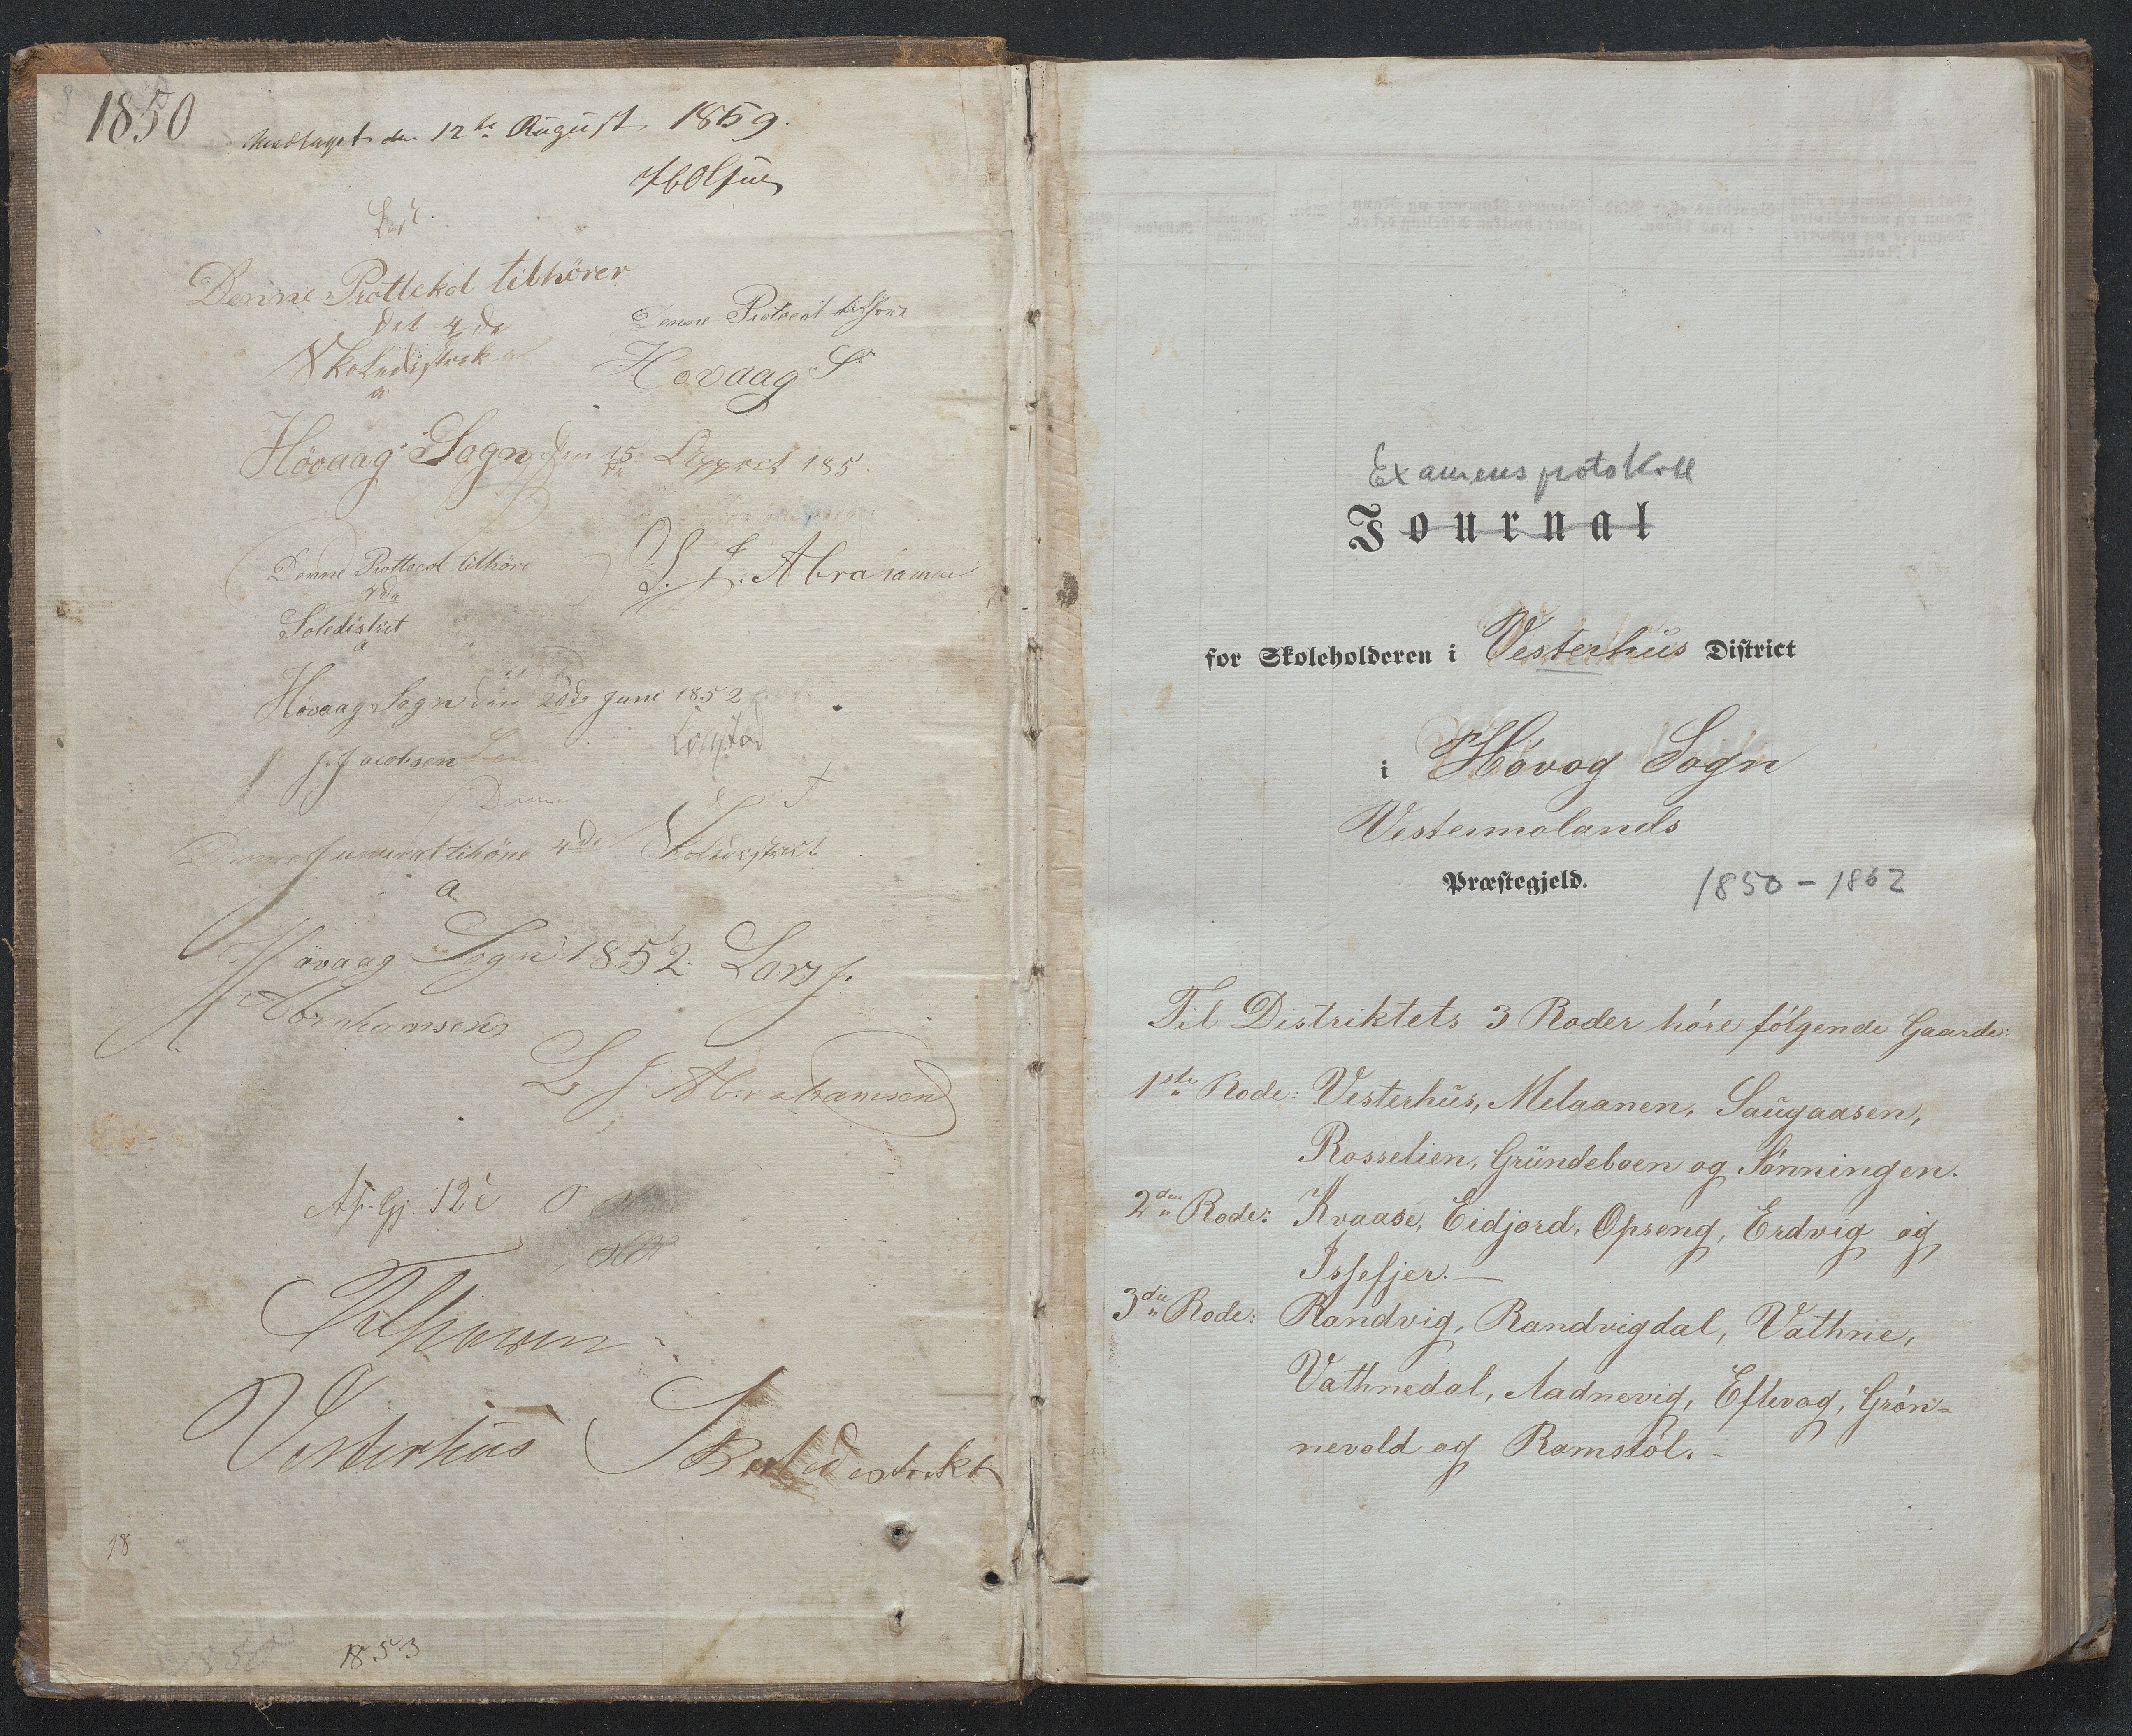 1850
Modtaget den 12te August 1859.
Denne Prottekol tilhörer
det 4de
Skoledistrek
a
Denne Protocol tilhöre
Hovaag S
Hövaag Sogn den 15de Appril 185
Denne Prottocol tilhöre
Soledistrict
a
L. J. Abrahamsen
Hövaag Sogn den 20de Juni 1852
J. Jacobsen
Denne
Denne tilhöre 4de Skoledistrict
a
Hövaag Sogn 1852 Lars J.
Abrahamsen
L J Abrahamsen
Vesterhus Skoledistrikt
18
1853
Examensprotokoll
Journal
for Skoleholderen i Vesterhus District
i Høvag Sogn
Vestermolands
Præstegjeld.
1850 - 1862
Til Distriktets 3 Roder høre følgende Gaarde:
1ste Rode: Vesterhus, Melaanen, Saugaasen,
Rosselien, Grundeboen og Tønningen.
2den Rode: Kvaase, Eidjord, Opseng, Erdvig og
Issefjer. —
3die Rode: Randvig, Randvigdal, Vathne,
Vathnedal, Aadnevig, Eftevag, Grøn=
nevold og Ramstøl. -